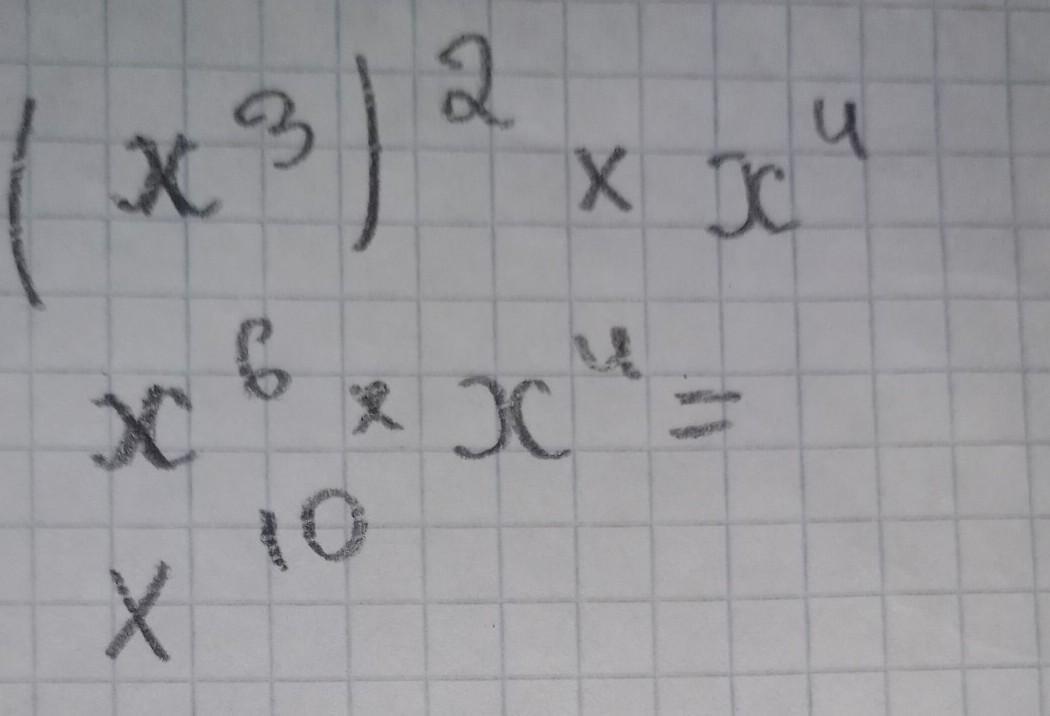 (x³)² × x⁴
x⁶ × x⁴ =
x¹⁰